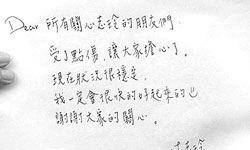 Dear 所有關心志玲的朋友們：
受了點傷，讓大家擔心了。
現在狀況很穩定，
我一定會很快的好起來的
謝謝大家的關心。
志玲